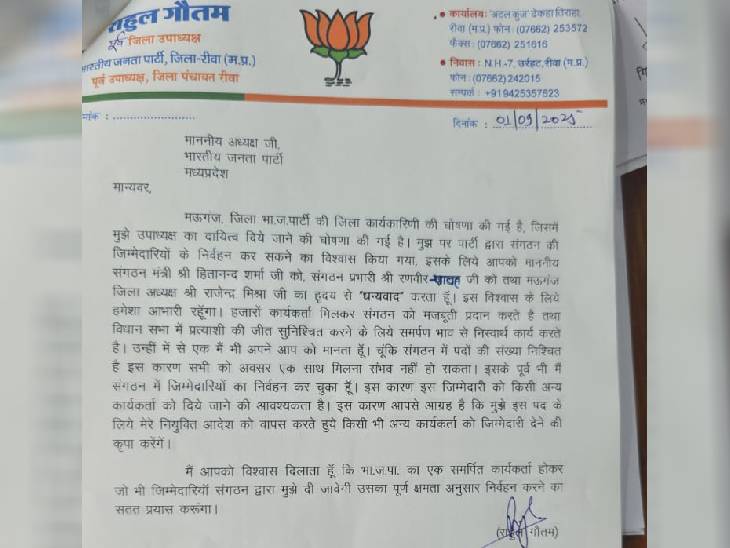 राहुल गौतम
पूर्व जिला उपाध्यक्ष
भारतीय जनता पार्टी, जिला-रीवा (म.प्र.)
पूर्व उपाध्यक्ष, जिला पंचायत रीवा
• कार्यालय: 'अटल कुंज' ढेकहा तिराहा,
रीवा (म.प्र.) फोन: (07662) 253572
फैक्स: (07662) 251616
• निवास: N.H-7, उर्रहट, रीवा (म.प्र.)
फोन: (07662)242015
सम्पर्क: +919425357623
मांक : ........................
दिनांक : 01/09/2025
माननीय अध्यक्ष जी,
भारतीय जनता पार्टी
मध्यप्रदेश
मान्यवर,
मऊगंज, जिला भा.ज.पार्टी की जिला कार्यकारिणी की घोषणा की गई है, जिसमें
मुझे उपाध्यक्ष का दायित्व दिये जाने की घोषणा की गई है। मुझ पर पार्टी द्वारा संगठन की
जिम्मेदारियों के निर्वहन कर सकने का विश्वास किया गया, इसके लिये आपको माननीय
संगठन मंत्री श्री हितानन्द शर्मा जी को, संगठन प्रभारी श्री रणवीर जी को तथा मऊगंज
जिला अध्यक्ष श्री राजेन्द्र मिश्रा जी का हृदय से 'धन्यवाद' करता हूँ। इस विश्वास के लिये
हमेशा आभारी रहूँगा। हजारों कार्यकर्ता मिलकर संगठन को मजबूती प्रदान करते है तथा
विधान सभा में प्रत्याशी की जीत सुनिश्चित करने के लिये समर्पण भाव से निस्वार्थ कार्य करते
है। उन्हीं में से एक मैं भी अपने आप को मानता हूँ। चूंकि संगठन में पदों की संख्या निश्चित
है इस कारण सभी को अवसर एक साथ मिलना संभव नहीं हो सकता। इसके पूर्व भी मैं
संगठन में जिम्मेदारियों का निर्वहन कर चुका हूँ। इस कारण इस जिम्मेदारी को किसी अन्य
कार्यकर्ता को दिये जाने की आवश्यकता है। इस कारण आपसे आग्रह है कि मुझे इस पद के
लिये मेरे नियुक्ति आदेश को वापस करते हुये किसी भी अन्य कार्यकर्ता को जिम्मेदारी देने की
कृपा करेंगें।
मैं आपको विश्वास दिलाता हूँ कि भा.ज.पा. का एक समर्पित कार्यकर्ता होकर
जो भी जिम्मेदारियाँ संगठन द्वारा मुझे दी जावेगी उसका पूर्ण क्षमता अनुसार निर्वहन करने का
सतत प्रयास करूंगा।
(राहुल गौतम)